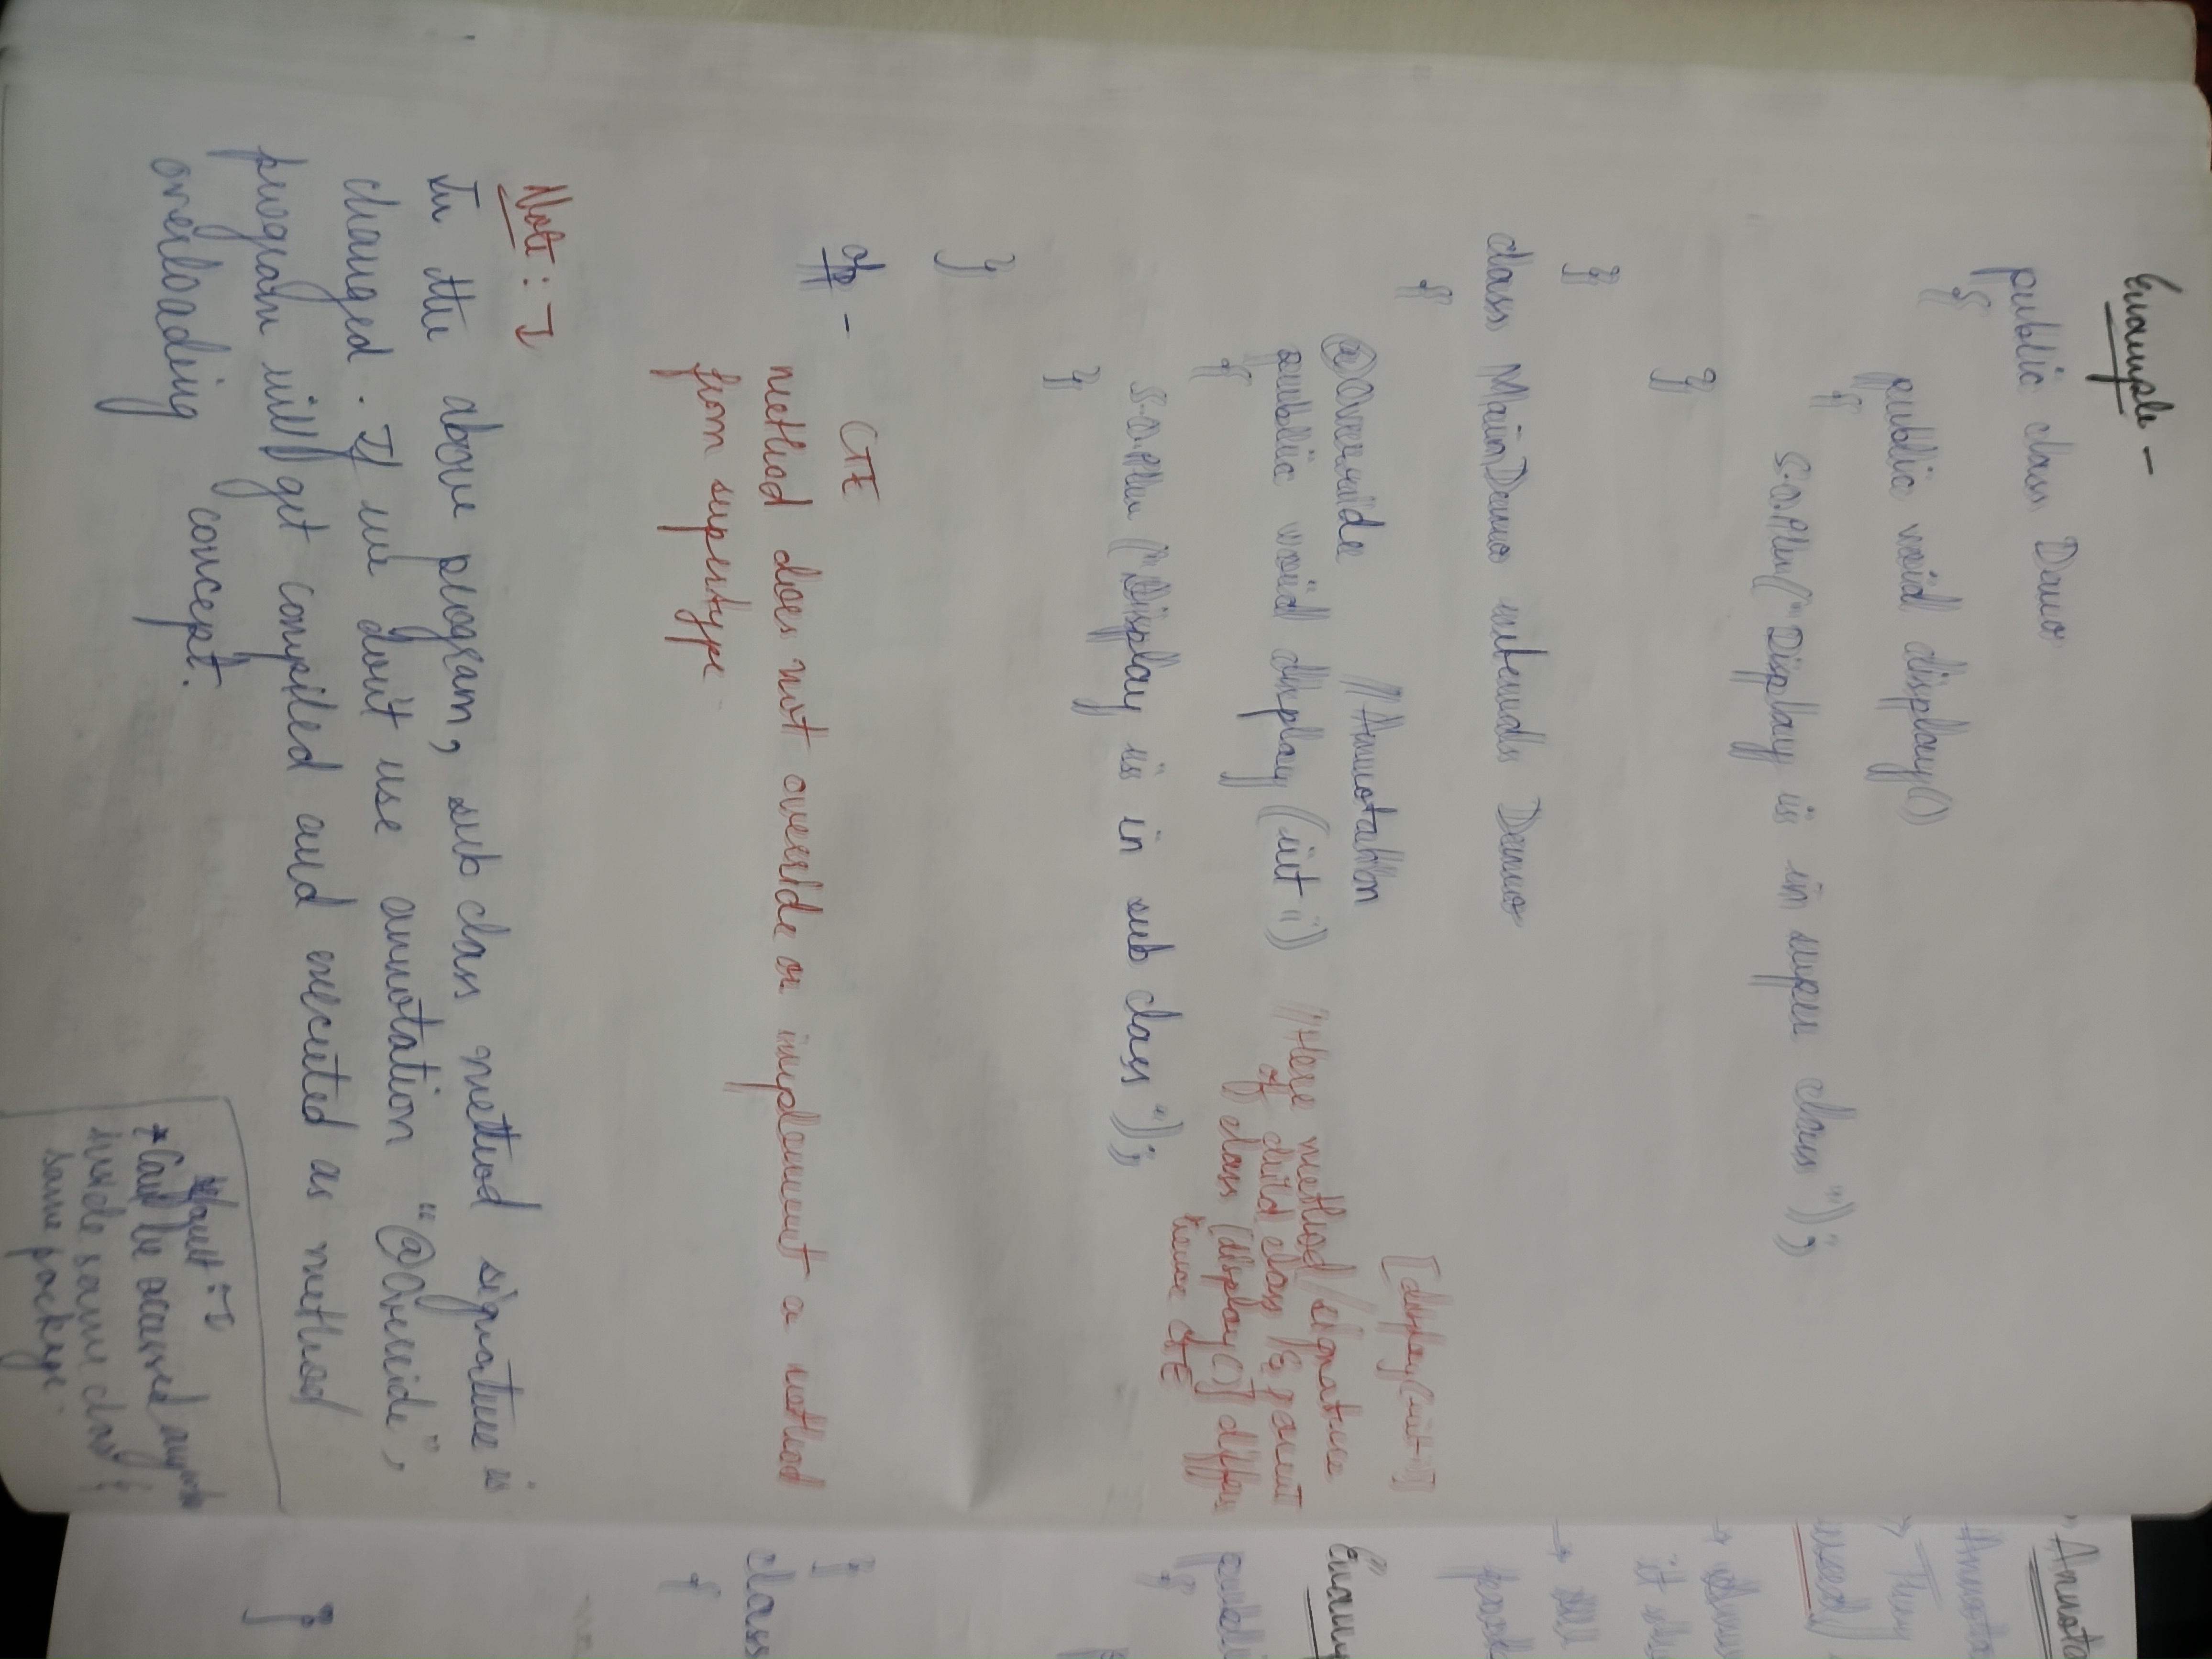 Example -
public class Demo
{
public void display()
{
S.O.Pln("Display is in super class");
}
}
class MainDemo extends Demo
{
[display(int i)]
@Override //Annotation
public void display (int i) //Here method signature
of child class & parent
class [display()] differs
hence CTE
{
S.O.Pln ("Display is in sub class");
}
}
o/p - CTE
method does not override or implement a method
from supertype
Note :-
In the above program, sub class method signature is
changed. If we don't use annotation "@Override",
program will get compiled and executed as method
overloading concept.
default :-
* Can be accessed
inside same class &
same package.
Annota
Annota
→ They
used
→
it
→ All
Exam
publi
{
}
class
{
}